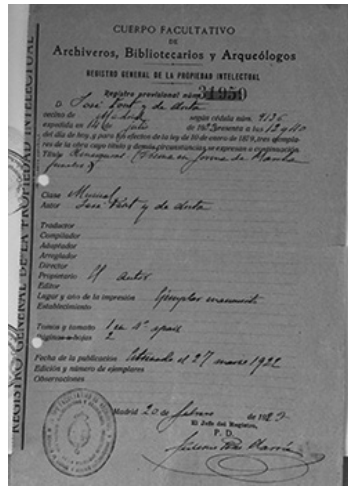 CUERPO FACULTATIVO
DE
Archiveros, Bibliotecarios y Arqueólogos
REGISTRO GENERAL DE LA PROPIEDAD INTELECTUAL
Registro provisional núm. 34950
D. José Font y de Anta
vecino de Madrid según cédula núm. 9136
expedida en 14 de julio de 192 presenta a las 12 y 40
del día de hoy, y para los efectos de la ley de 10 de enero de 1879, tres ejempla-
res de la obra cuyo título y demás circunstancias se expresan a continuación.
Título
Clase Musical
Autor José Font y de Anta
Traductor
Compilador
Adaptador
Arreglador
Director
Propietario El autor
Editor
Lugar y año de la impresión Ejemplar manuscrito
Establecimiento
Tomos y tamaño 1 en 4º apais
Páginas u hojas 2
Fecha de la publicación Estrenado el 27 marzo 1922
Edición y número de ejemplares
Observaciones
Madrid 20 de febrero de 1923
El Jefe del Registro,
P. D.
REGISTRO GENERAL DE LA PROPIEDAD INTELECTUAL